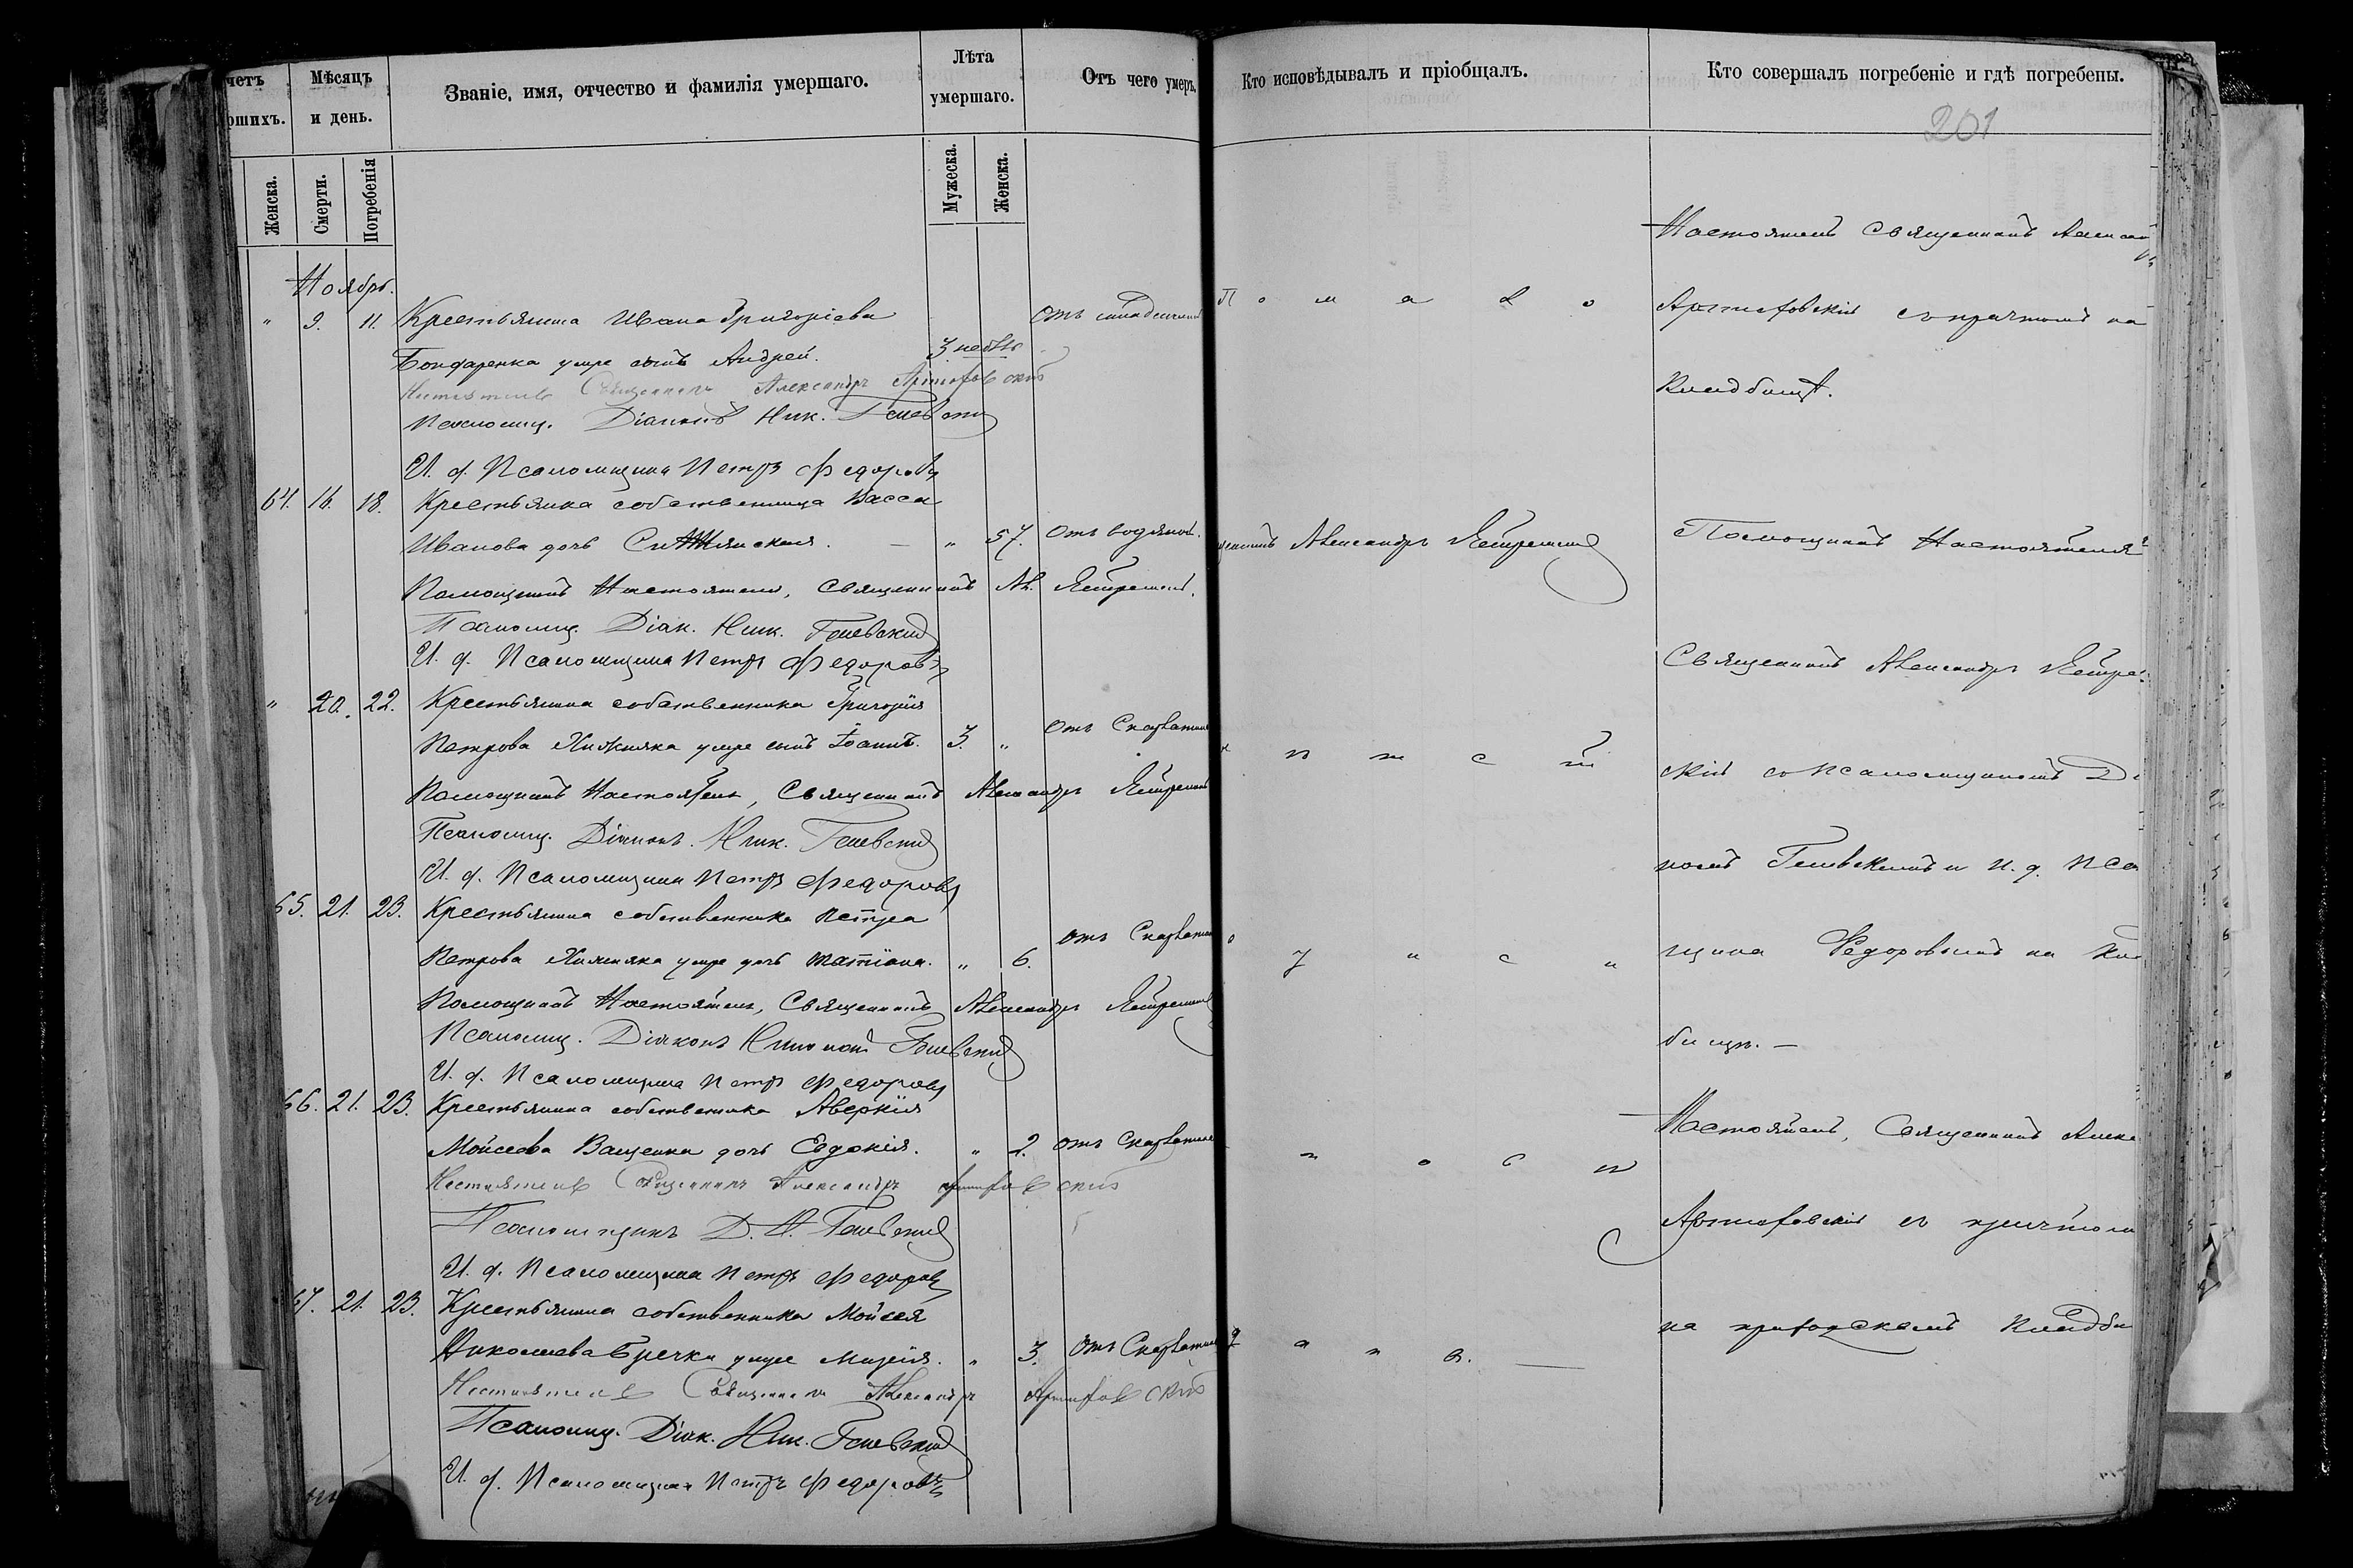 четъ
ршихъ.
Мѣсяцъ
и день.
Званіе, имя, отчество и фамилія умершаго.
Лѣта
умершаго.
Отъ чего умеръ.
Женска.
Смерти.
Погребенія
Мужеска.
Женска.
Ноябрь.
" 9. 11. Крестьянина Ивана Григоріева
Бондаренка умре сынъ Андрей. 3 недѣль
Отъ младенческой
Настоятель Священникъ Александръ Артюховскій
Псаломщ. Діаконъ Ник.
И. д. Псаломщика Петръ Федоровъ
64. 16. 18. Крестьянка собственница Васса
Иванова дочь — " 57. Отъ водяной.
Помощникъ Настоятеля, Священникъ Ал.
Псаломщ. Діак. Ник.
И. д. Псаломщика Петръ Федоровъ
" 20. 22. Крестьянина собственника Григорія
Петрова Хижняка умре сынъ Іоаннъ. 3. " Отъ Скарлатины
Помощникъ Настоятеля, Священникъ Александръ
Псаломщ. Діаконъ. Ник.
И. д. Псаломщика Петръ Федоровъ
65. 21. 23. Крестьянина собственника Петра
Петрова Хижняка умре дочь Татіана. " 6. отъ Скарлатин
Помощникъ Настоятеля, Священникъ Александръ
Псаломщ. Діаконъ Николай
И. д. Псаломщика Петръ Федоровъ
66. 21. 23. Крестьянина собственника Аверкія
Мойсеева Ващенка дочь Евдокія. " 2. отъ Скарлатины
Настоятель Священникъ Александръ Артюховскій
Псаломщикъ Д. Н.
И. д. Псаломщика Петръ Федоровъ
67. 21. 23. Крестьянина собственника Мойсея
Николаева Гречки умре Марія. " 3. Отъ Скарлатины
Настоятель Священникъ Александръ Артюховскій
Псаломщ. Діак. Ник.
И. д. Псаломщика Петръ Федоровъ
Кто исповѣдывалъ и пріобщалъ.
Кто совершалъ погребеніе и гдѣ погребены.
201
Настоятель Священникъ Александръ
Артюховскій съ причтомъ на
Кладбищѣ.
Александръ
Помощникъ Настоятеля
Священникъ Александръ
скій со Псаломщикомъ Ді
и И. д. Пса
щика Федоровымъ на Кла
бищѣ. —
Настоятель, Священникъ Алекс
Артюховскій съ причтомъ
на приходскомъ Кладби